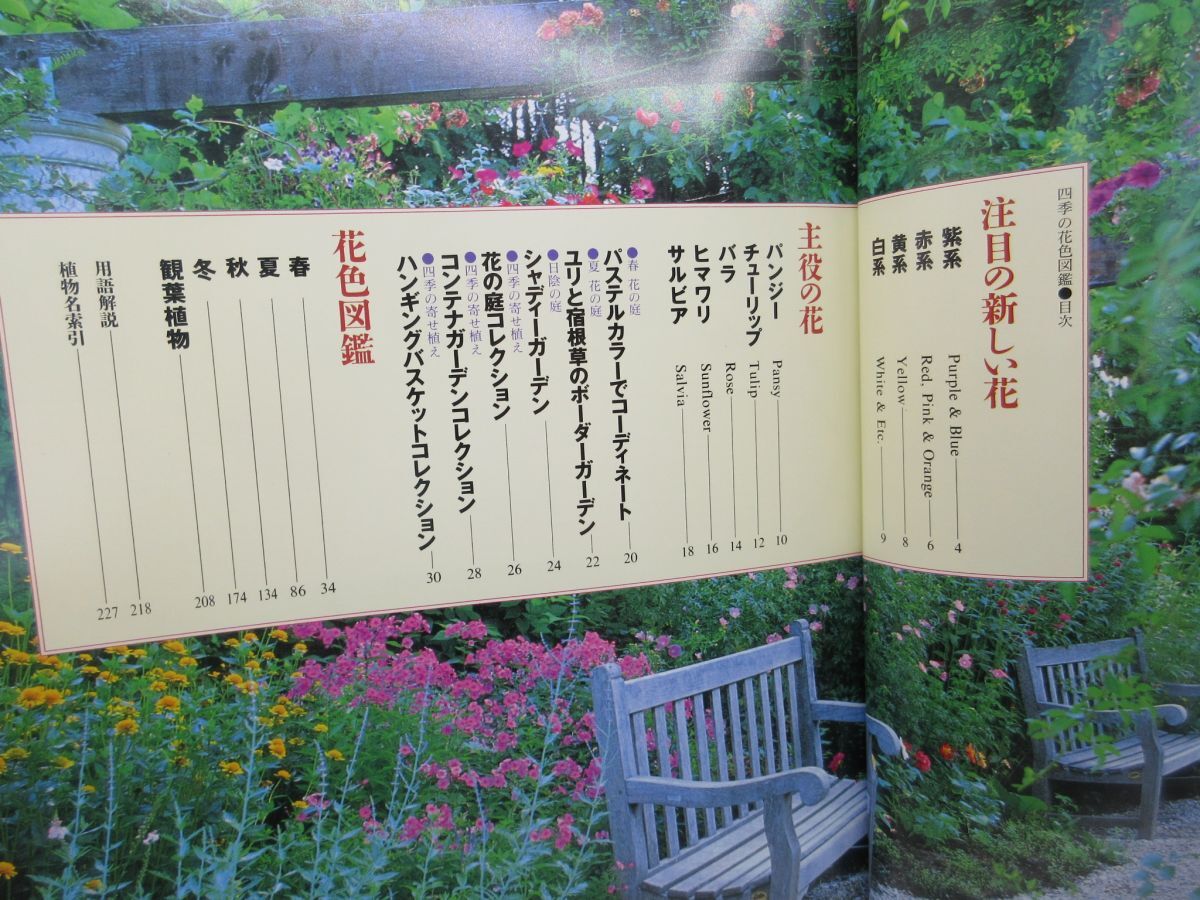 四季の花色図鑑●目次
注目の新しい花
紫系 Purple & Blue 4
赤系 Red, Pink & Orange 6
黄系 Yellow 8
白系 White & Etc. 9
主役の花
パンジー Pansy 10
チューリップ Tulip 12
バラ Rose 14
ヒマワリ Sunflower 16
サルビア Salvia 18
●春 花の庭
パステルカラーでコーディネート 20
●夏 花の庭
ユリと宿根草のボーダーガーデン 22
●日陰の庭
シャディーガーデン 24
●四季の寄せ植え
花の庭コレクション 26
●四季の寄せ植え
コンテナガーデンコレクション 28
●四季の寄せ植え
ハンギングバスケットコレクション 30
花色図鑑
春 34
夏 86
秋 134
冬 174
観葉植物 208
用語解説 218
植物名索引 227